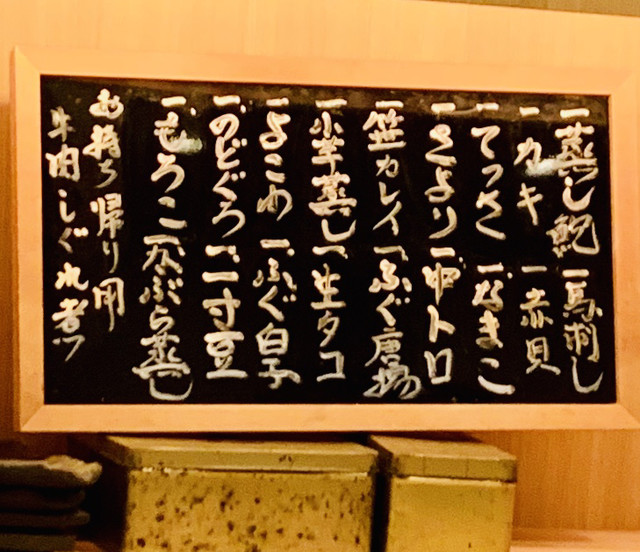 一、蒸し鮑 一、馬刺し
一、カキ 一、赤貝
一、てっさ 一、なまこ
一、さより 一、中トロ
一、笹カレイ 一、ふぐ唐揚
一、小芋蒸し 一、生タコ
一、よこわ 一、ふぐ白子
一、のどぐろ 一、一寸豆
一、もろこ 一、かぶら蒸し
お持ち帰り用
牛肉しぐれ煮